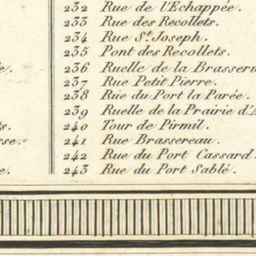 232 Rue de l'Echappée.
233 Rue des Recollets.
234 Rue St. Joseph.
235 Pont des Recollets.
236 Ruelle de la
237 Rue Petit Pierre.
238 Rue du Port la Parée.
239 Ruelle de la Prairie
240 Tour de Pirmil.
241 Rue Brassereau.
242 Rue du Port Cassard.
243 Rue du Port Sablé.